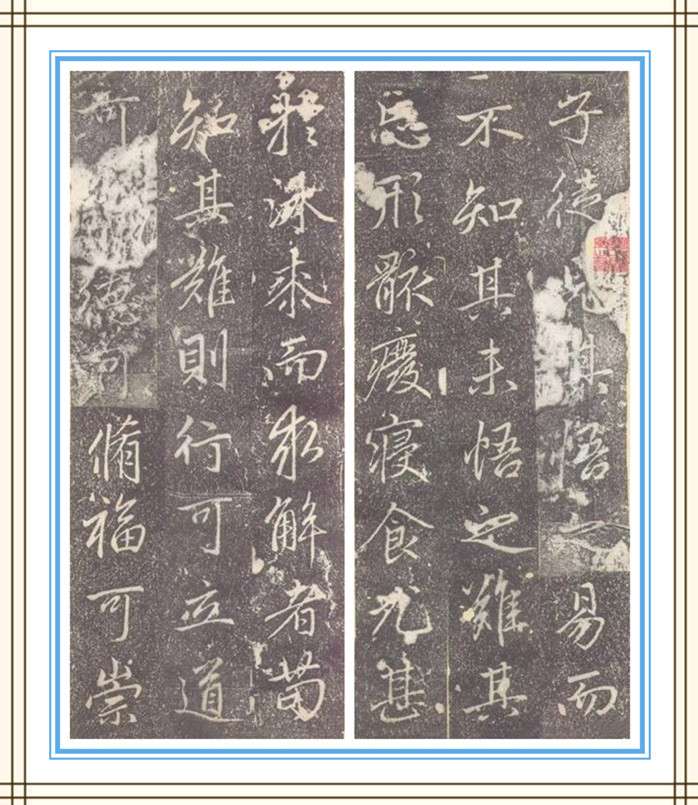 子徒見其悟之易而
不知其未悟之難其
忘形骸廢寢食尤甚
於而求解者苟
知其難則行可立道
可德可脩福可崇